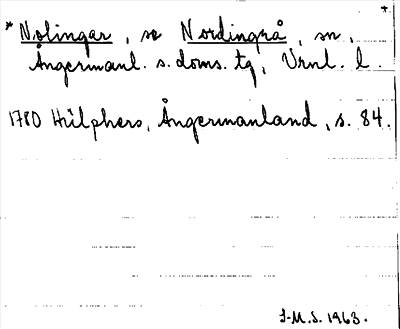 * Nolingar, se Nordingrå, sn,
Ångermanl. s. doms. tg, Vrnl. l.
1780 Hülphers, Ångermanland, s. 84.
J-M.S. 1963.